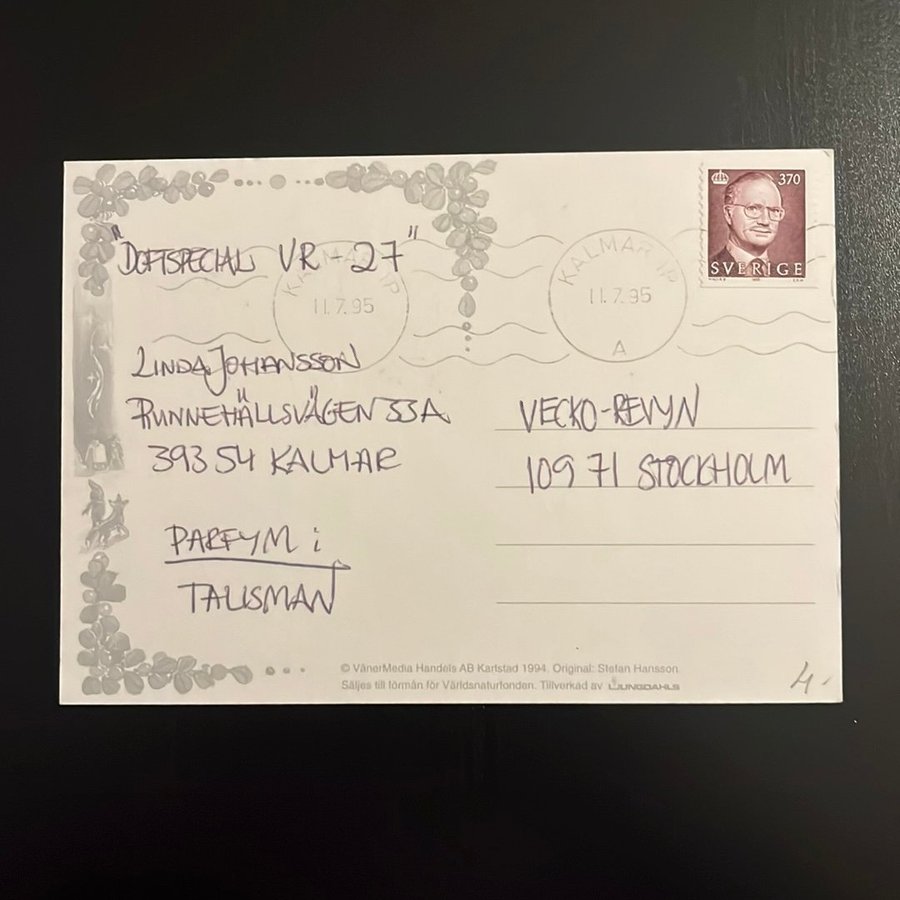 370
SVERIGE
KALMAR 1P
11.7.95
KALMAR 1P
11.7.95
A
"DOFTSPECIAL VR - 27"
LINDA JOHANSSON
RUNNEHÄLLSVÄGEN 33A
393 54 KALMAR
PARFYM i
TALISMAN
VECKO-REVYN
109 71 STOCKHOLM
© VänerMedia Handels AB Karlstad 1994. Original: Stefan Hansson.
Säljes till förmån för Världsnaturfonden. Tillverkad av LJUNGDAHLS
4.-